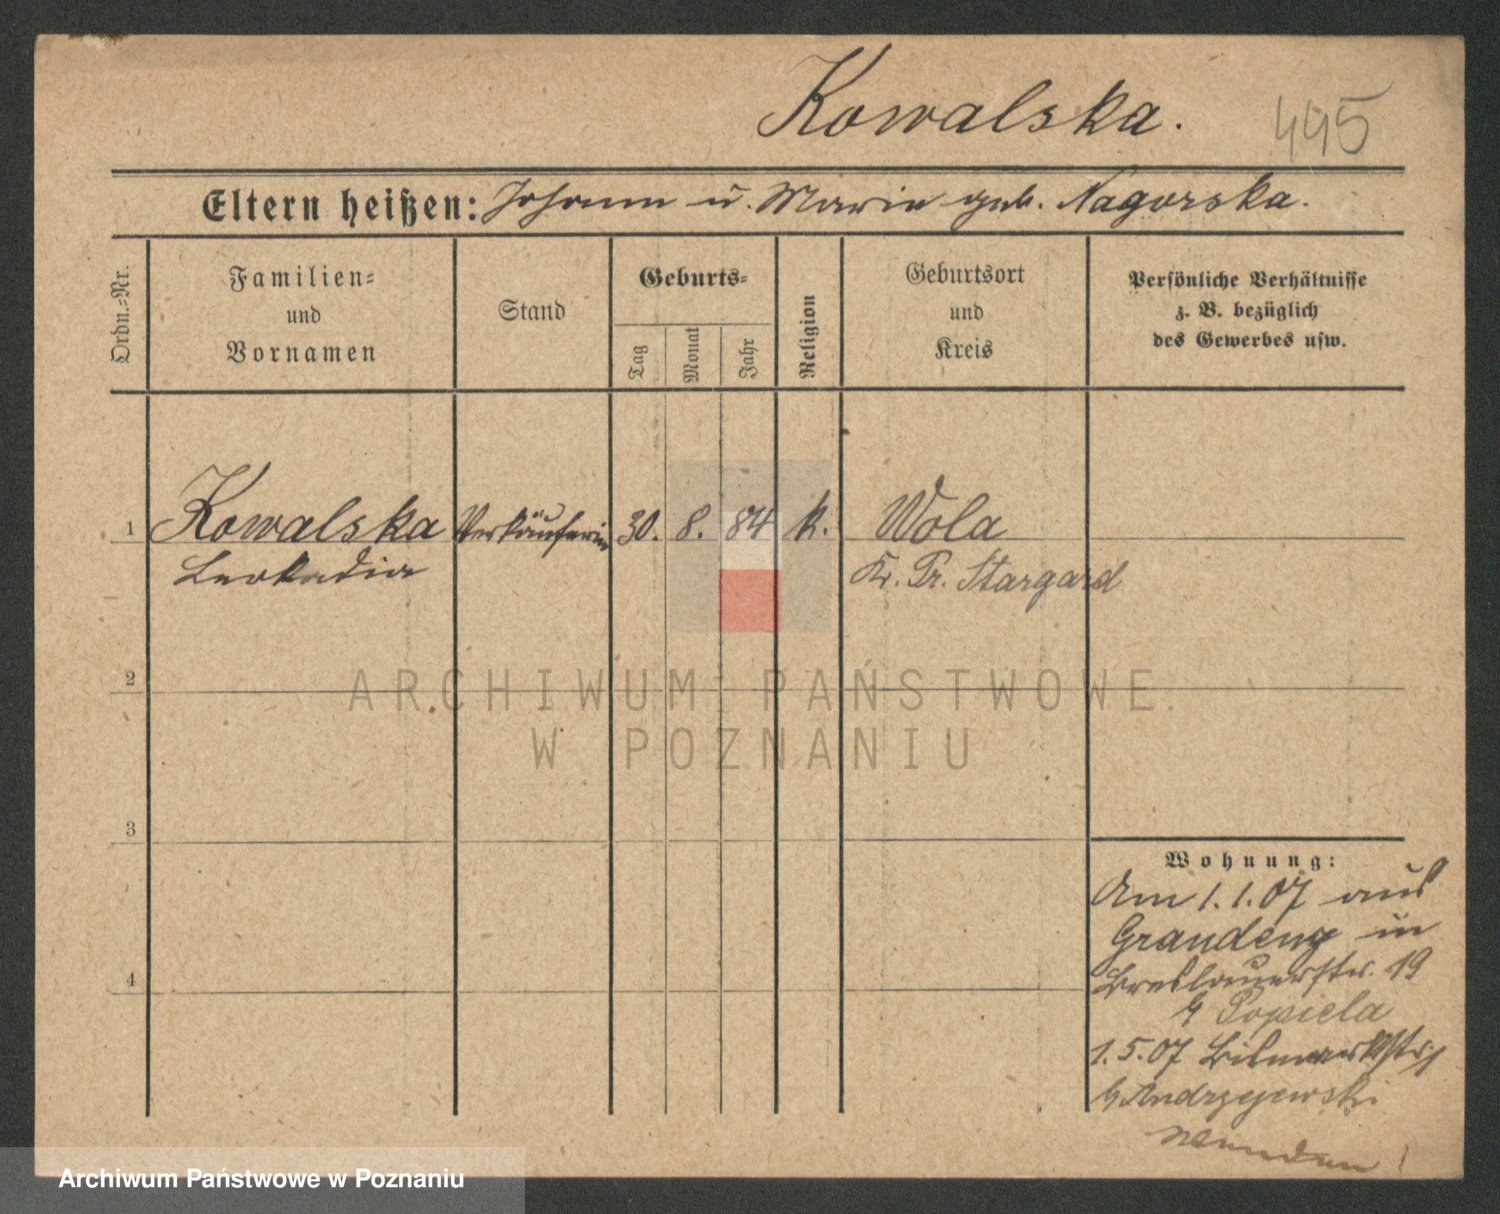 Kowalska.
495
Eltern heißen: Johann u. Marie geb. Nagorska.
Ordn.-Nr.
Familien-
und
Vornamen
Stand
Geburts-
Tag
Monat
Jahr
Religion
Geburtsort
und
Kreis
Persönliche Verhältnisse
z. B. bezüglich
des Gewerbes usw.
1 Kowalska Verkäuferin 30. 8. 84 k. Wola
Leokadia Kr. Pr. Stargard
2
ARCHIWUM PAŃSTWOWE
W POZNANIU
3
Wohnung:
Am 1.1.07 aus
Graudenz in
4
Breslauerstr. 19
b/ Popiela
1.5.07 Bismarkstr. 1
b/ Andrzejewski
Archiwum Państwowe w Poznaniu